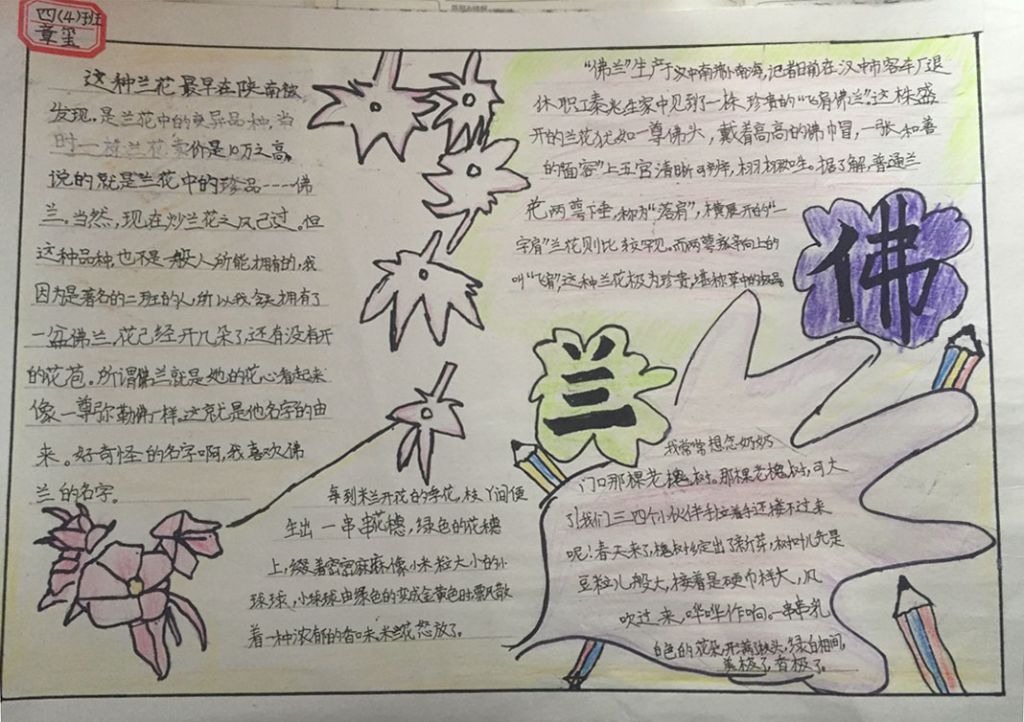 四(4)班
章玺
这种兰花最早在陕南被
发现，是兰花中的变异品种，当
时一株兰花卖价是10万之高，
说的就是兰花中的珍品----佛
兰。当然，现在炒兰花之风已过。但
这种品种，也不是一般人所能拥有的，我
因为是著名的二班的人，所以我拥有了
一盆佛兰，花已经开几朵了，还有没有开
的花苞。所谓佛兰就是她的花心看起来
像一尊弥勒佛一样。这就是他名字的由
来。好奇怪的名字啊，我喜欢佛
兰的名字。
每到米兰开花的季花，枝丫间便
生出一串串花穗，绿色的花穗
上，缀着密密麻麻像小米粒大小的小
球球，小球球由绿色的变成金黄色时飘散
着一种浓郁的香味，米兰花怒放了。
“佛兰”生产于汉中南郑，记者日前在汉中市客车厂退
休职工秦先生家中见到了一株珍贵的“飞肩佛兰”这株盛
开的兰花犹如一尊佛头，戴着高高的佛巾冒，一张“和善
的面容”上五官清晰可辨，栩栩如生。据了解，普通兰
花两萼下垂，称为“落肩”，横展开的“一
字肩”兰花则比较罕见。而两萼竟向上的
叫“飞肩”，这种兰花极为珍贵，堪称草中的极品
佛
兰
我常常想念奶奶
门口那棵老槐树。那棵老槐树，可大
了！我们三四个小伙伴手拉着手还搂不过来
呢！春天来了，槐树绽出了新芽，树叶儿先是
豆粒儿般大，接着是硬币样大，风
吹过来，哗哗作响。一串串乳
白色的花朵，开满了枝头，绿白相间，
美极了，香极了。